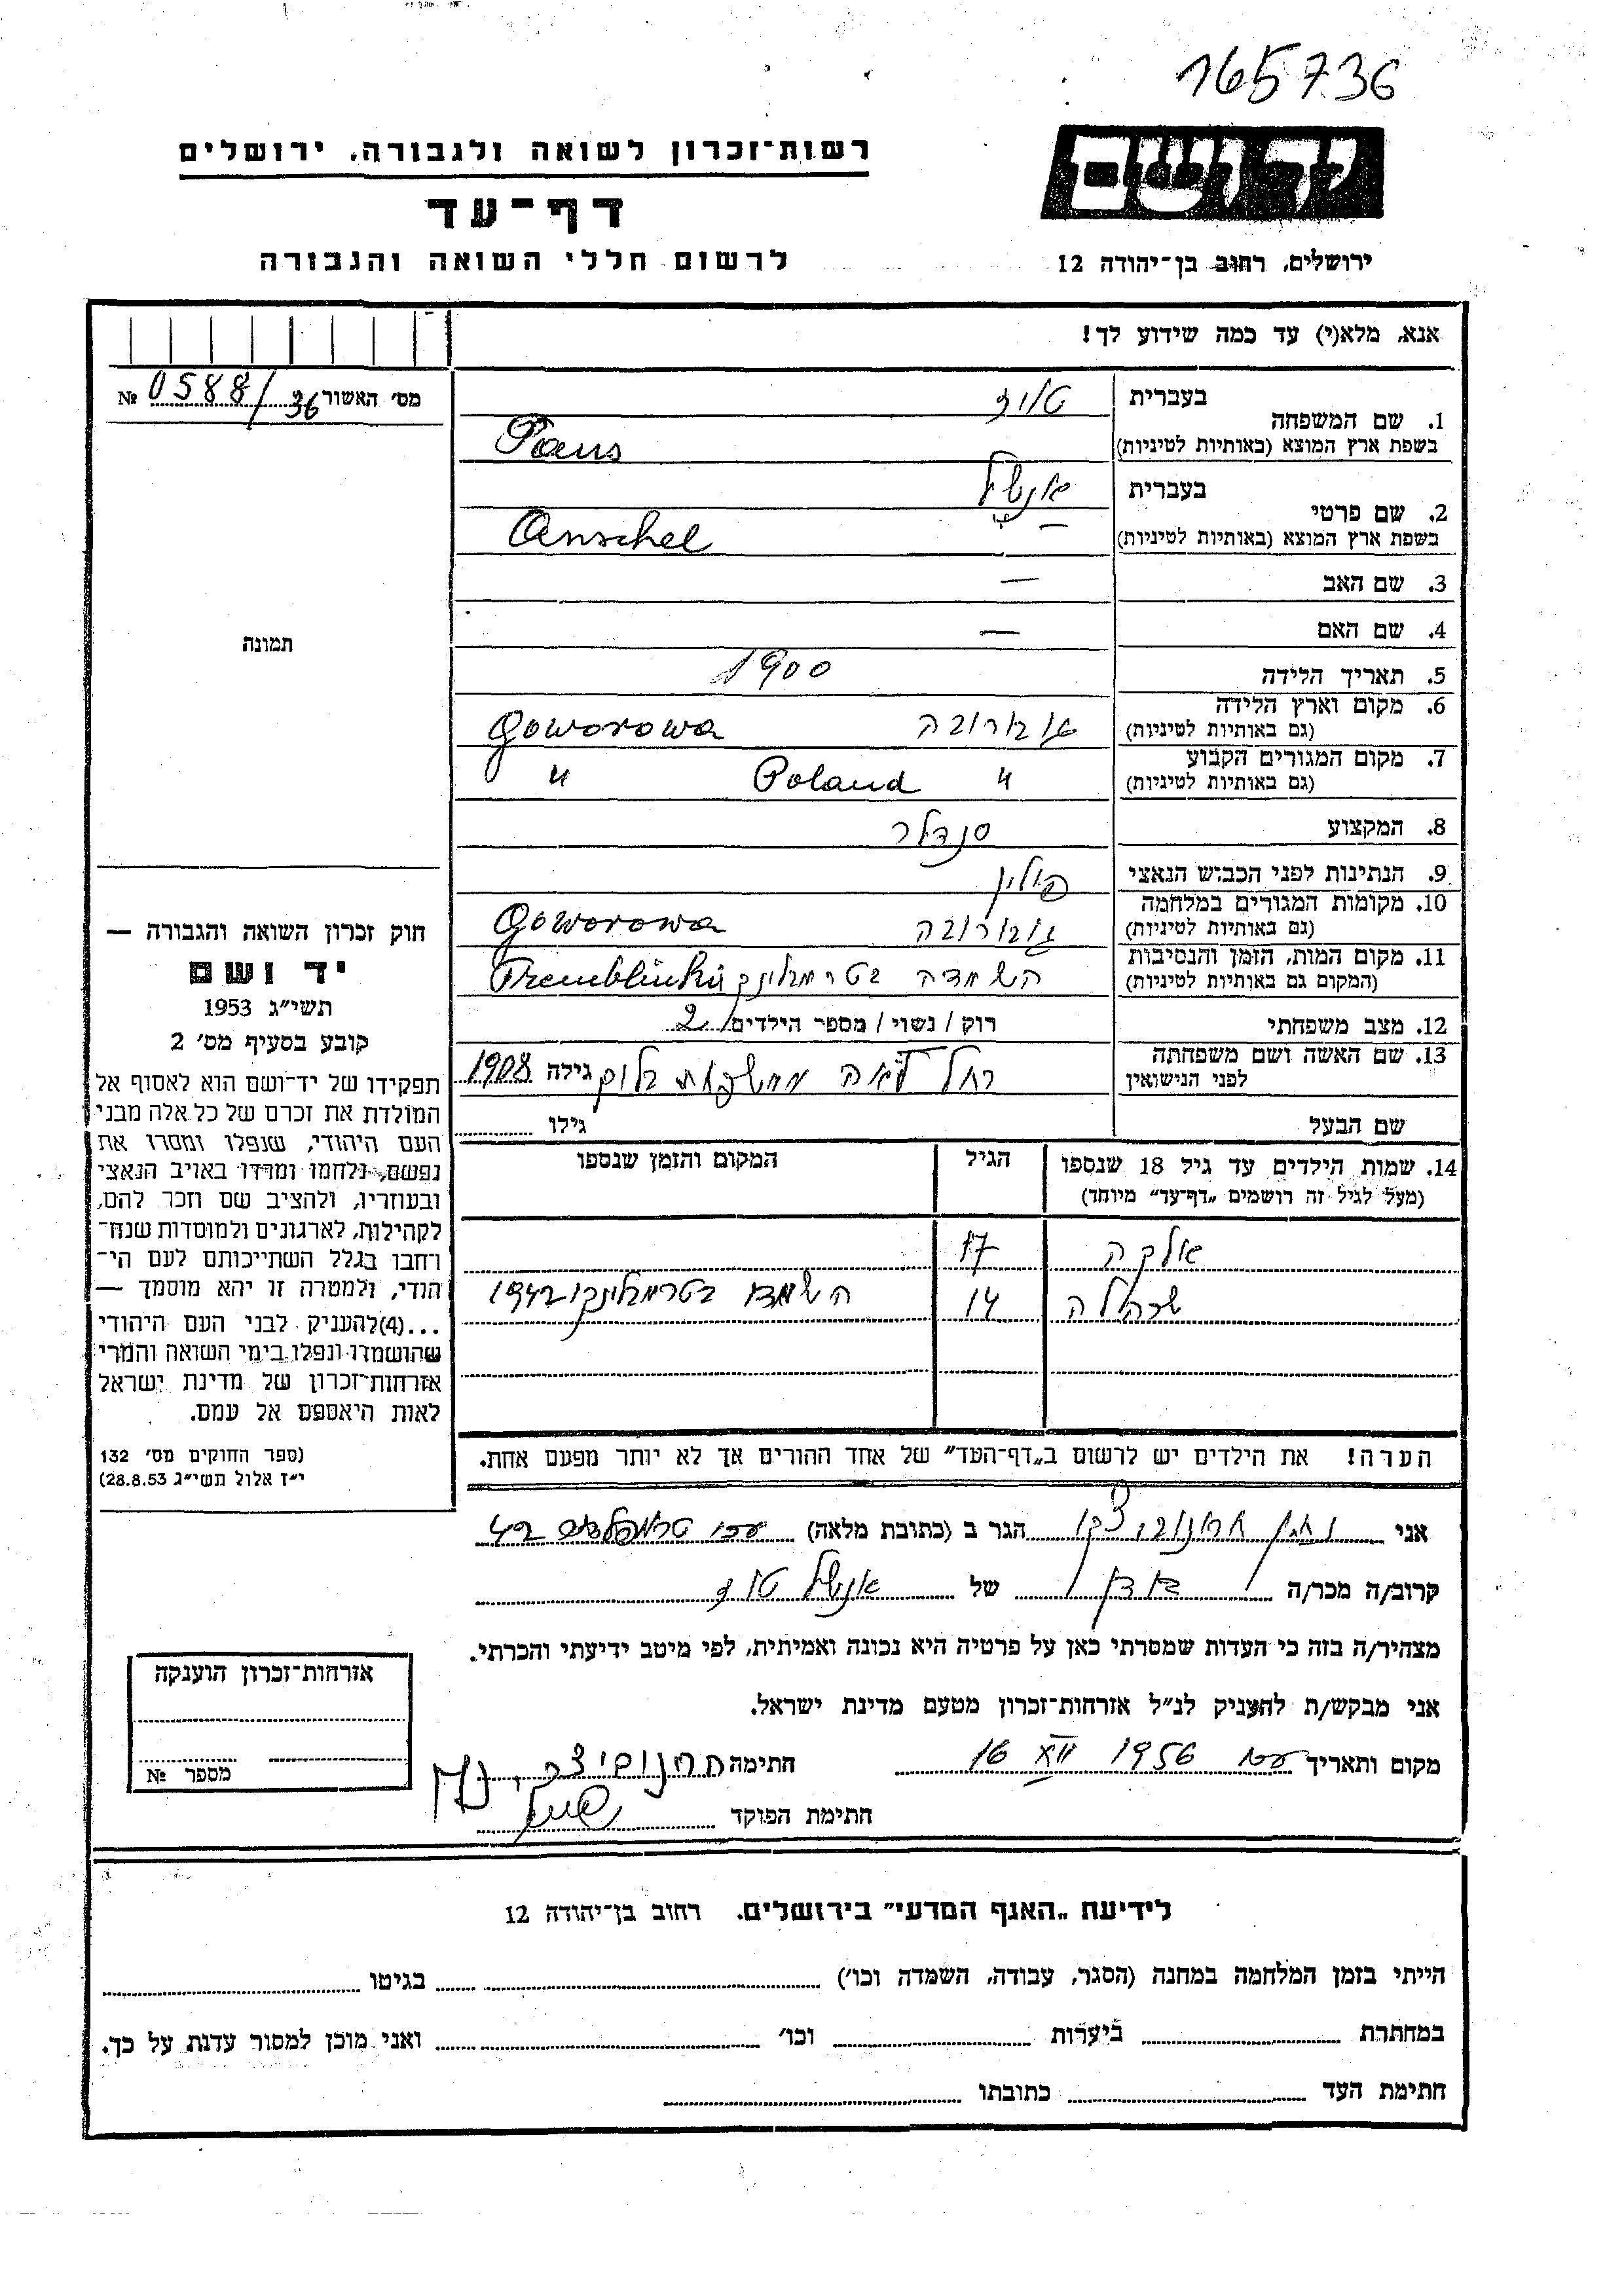 165736
ידושם
רשות־זכרון לשואה ולגבורה, ירושלים
דף־עד
לרשום חללי השואה והגבורה
ירושלים, רחוב בן־יהודה 12
אנא, מלא(י) עד כמה שידוע לך!
מס׳ האשור № 0588/36
תמונה
1. שם המשפחה
בעברית
בשפת ארץ המוצא (באותיות לטיניות)
2. שם פרטי
בעברית אנשל
בשפת ארץ המוצא (באותיות לטיניות) Anschel
3. שם האב —
4. שם האם —
5. תאריך הלידה 1900
6. מקום וארץ הלידה
(גם באותיות לטיניות) Goworowa
7. מקום המגורים הקבוע
(גם באותיות לטיניות) " Poland "
8. המקצוע סנדלר
9. הנתינות לפני הכבוש הנאצי פולין
10. מקומות המגורים במלחמה
(גם באותיות לטיניות) גוברובה Goworowa
11. מקום המות, הזמן והנסיבות
(המקום גם באותיות לטיניות) השמדה בטרמבלינקה
12. מצב משפחתי רוק / נשוי / מספר הילדים 2
13. שם האשה ושם משפחתה
לפני הנישואין רחל לאה ממשפחת גילה 1908
שם הבעל גילו
14. שמות הילדים עד גיל 18 שנספו הגיל המקום והזמן שנספו
(מעל לגיל זה רושמים „דף־עד״ מיוחד)
אלקה 17
שרהלה 14 השמדו בטרמבלינקו 1942
הערה! את הילדים יש לרשום ב„דף־העד״ של אחד ההורים אך לא יותר מפעם אחת.
חוק זכרון השואה והגבורה —
יד ושם
תשי״ג 1953
קובע בסעיף מס׳ 2
תפקידו של יד־ושם הוא לאסוף אל
המולדת את זכרם של כל אלה מבני
העם היהודי, שנפלו ומסרו את
נפשם, נלחמו ומרדו באויב הנאצי
ובעוזריו, ולהציב שם וזכר להם,
לקהילות, לארגונים ולמוסדות שנח־
רחבו בגלל השתייכותם לעם הי־
הודי, ולמטרה זו יהא מוסמך —
...(4)להעניק לבני העם היהודי
שהושמדו ונפלו בימי השואה והמרי
אזרחות־זכרון של מדינת ישראל
לאות היאספם אל עמם.
(ספר החוקים מס׳ 132
י״ז אלול תשי״ג 28.8.53)
אני נתן הגר ב (כתובת מלאה) עכו 42
קרוב/ה מכר/ה של אנשל
מצהיר/ה בזה כי העדות שמסרתי כאן על פרטיה היא נכונה ואמיתית, לפי מיטב ידיעתי והכרתי.
אני מבקש/ת להעניק לנ״ל אזרחות־זכרון מטעם מדינת ישראל.
מקום ותאריך עכו 16 XII 1956 חתימה
חתימת הפוקד
אזרחות־זכרון הוענקה
מספר №
לידיעת „האגף המדעי״ בירושלים. רחוב בן־יהודה 12
הייתי בזמן המלחמה במחנה (הסגר, עבודה, השמדה וכו׳) בגיטו
במחתרת ביערות וכו׳ ואני מוכן למסור עדות על כך.
חתימת העד כתובתו